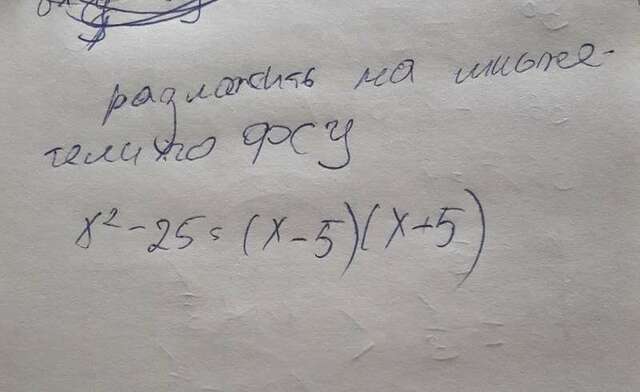 разложить на множе-
тели по ФСУ
x² - 25 = (x - 5)(x + 5)